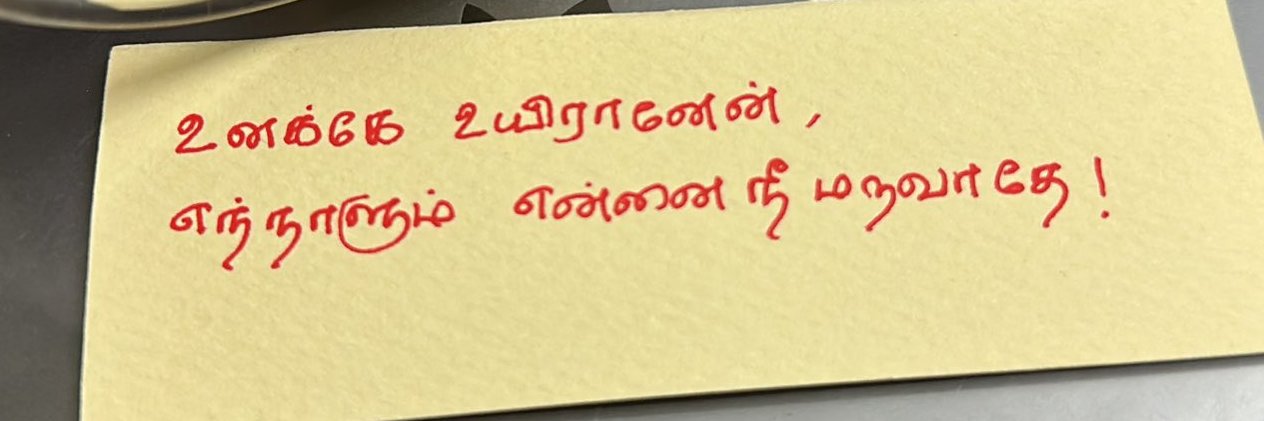 உனக்கே உயிரானேன்,
எந்நாளும் என்னை நீ மறவாதே!